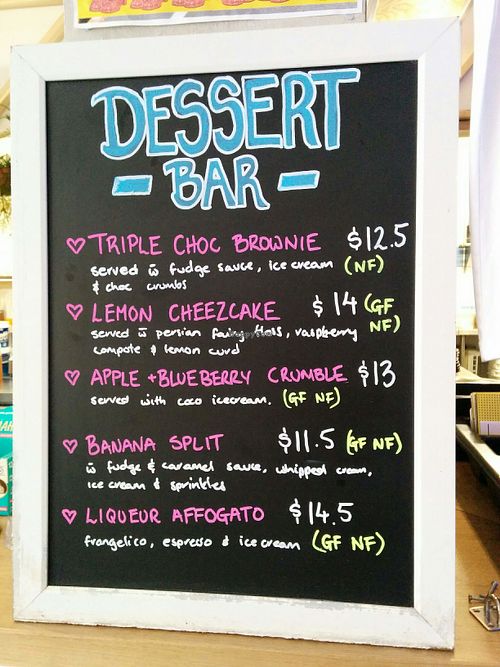 DESSERT
- BAR -
♡ TRIPLE CHOC BROWNIE $12.5
served w̄ fudge sauce, ice cream (NF)
& choc crumbs
♡ LEMON CHEEZCAKE $14 (GF NF)
served w̄ persian fairy floss, raspberry
compote & lemon curd
♡ APPLE + BLUEBERRY CRUMBLE $13
served with coco icecream. (GF NF)
♡ BANANA SPLIT $11.5 (GF NF)
w̄ fudge & caramel sauce, whipped cream,
ice cream & sprinkles
♡ LIQUEUR AFFOGATO $14.5
frangelico, espresso & ice cream (GF NF)